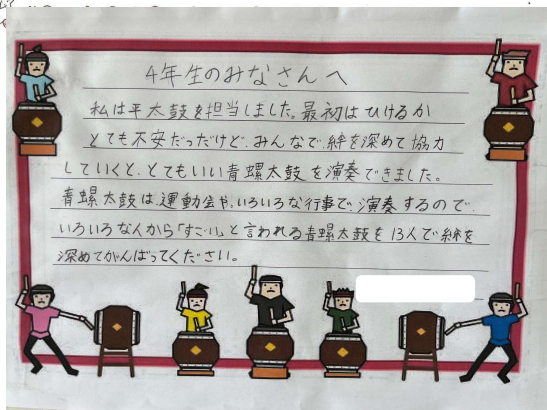 4年生のみなさんへ
私は平太鼓を担当しました。最初はひけるか
とても不安だったけど、みんなで、絆を深めて協力
していくと、とてもいい青螺太鼓を演奏できました。
青螺太鼓は、運動会や、いろいろな行事で、演奏するので、
いろいろな人から「すごい」と言われる青螺太鼓を13人で絆を
深めてがんばってください。